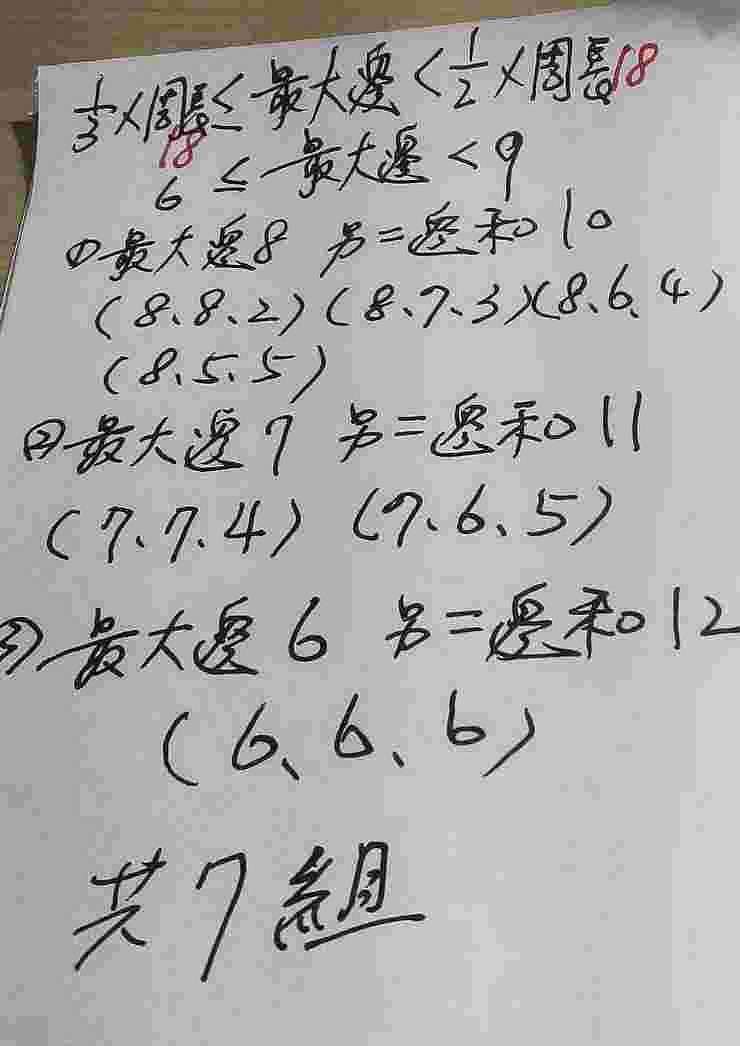 1/3×周長≤最大邊<1/2×周長18
18
6≤最大邊<9
①最大邊8 另二邊和10
(8、8、2)(8、7、3)(8、6、4)
(8、5、5)
②最大邊7 另二邊和11
(7、7、4) (7、6、5)
③最大邊6 另二邊和12
(6、6、6)
共7組